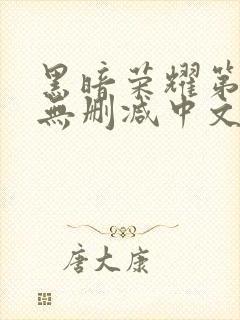 黑暗荣耀第
無删减中文
唐大康